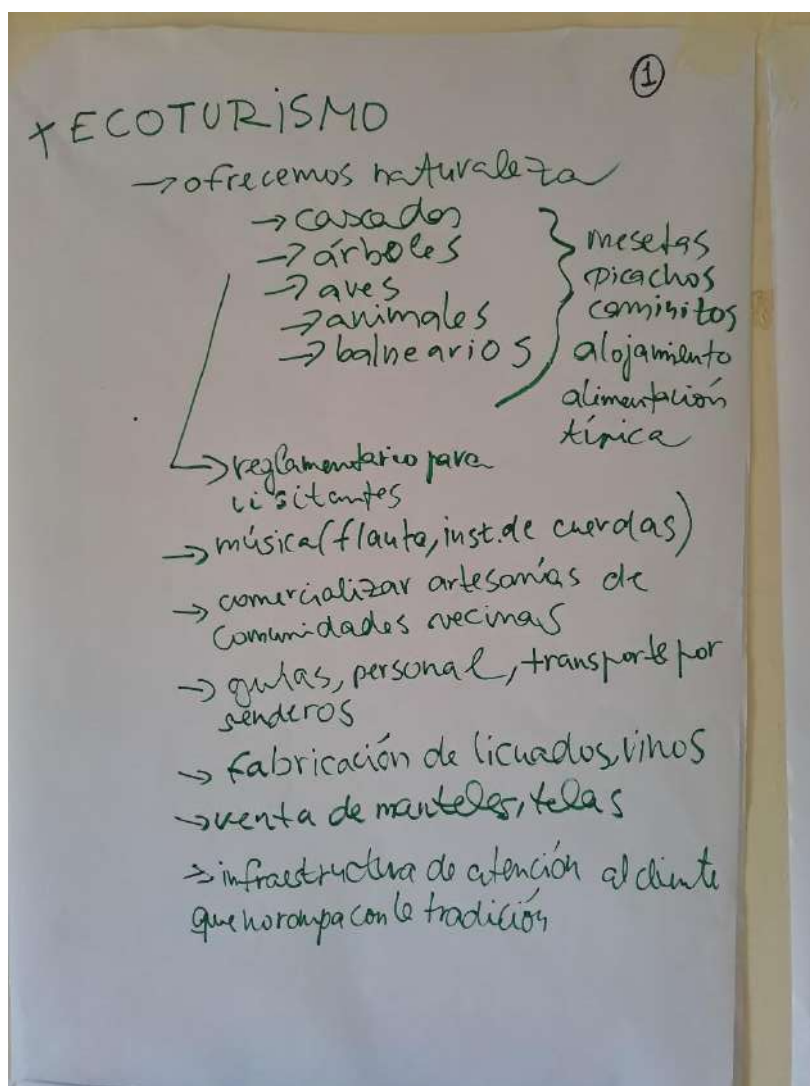 ①
+ ECOTURISMO
→ ofrecemos naturaleza
→ cascadas
→ árboles
→ aves
→ animales
→ balnearios
mesetas
picachos
caminitos
alojamiento
alimentación
típica
→ reglamentario para
visitantes
→ música (flauta, inst. de cuerdas)
→ comercializar artesanías de
comunidades vecinas
→ guías, personal, transporte por
senderos
→ fabricación de licuados, vinos
→ venta de manteles, telas
→ infraestructura de atención al cliente
que no rompa con la tradición